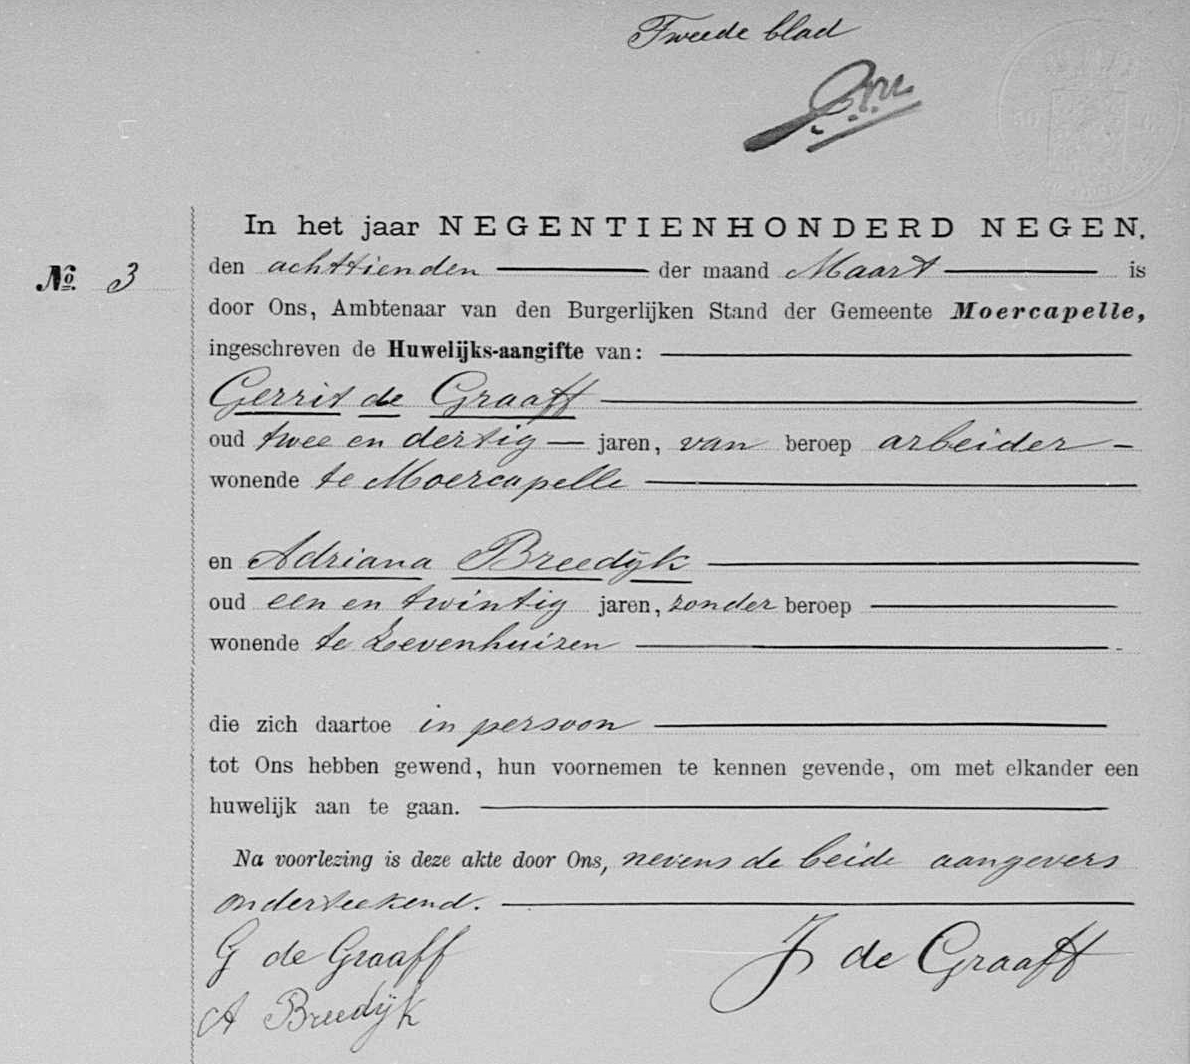 Tweede blad
In het jaar NEGENTIENHONDERD NEGEN,
den achttienden der maand Maart is
No. 3
door Ons, Ambtenaar van den Burgerlijken Stand der Gemeente Moercapelle,
ingeschreven de Huwelijks-aangifte van:
Gerrit de Graaff
oud twee en dertig jaren, van beroep arbeider
wonende te Moercapelle
en Adriana Breedijk
oud een en twintig jaren, zonder beroep
wonende te Zevenhuizen
die zich daartoe in persoon
tot Ons hebben gewend, hun voornemen te kennen gevende, om met elkander een
huwelijk aan te gaan.
Na voorlezing is deze akte door Ons, nevens de beide aangevers
onderteekend.
G de Graaff
J de Graaff
A Breedijk